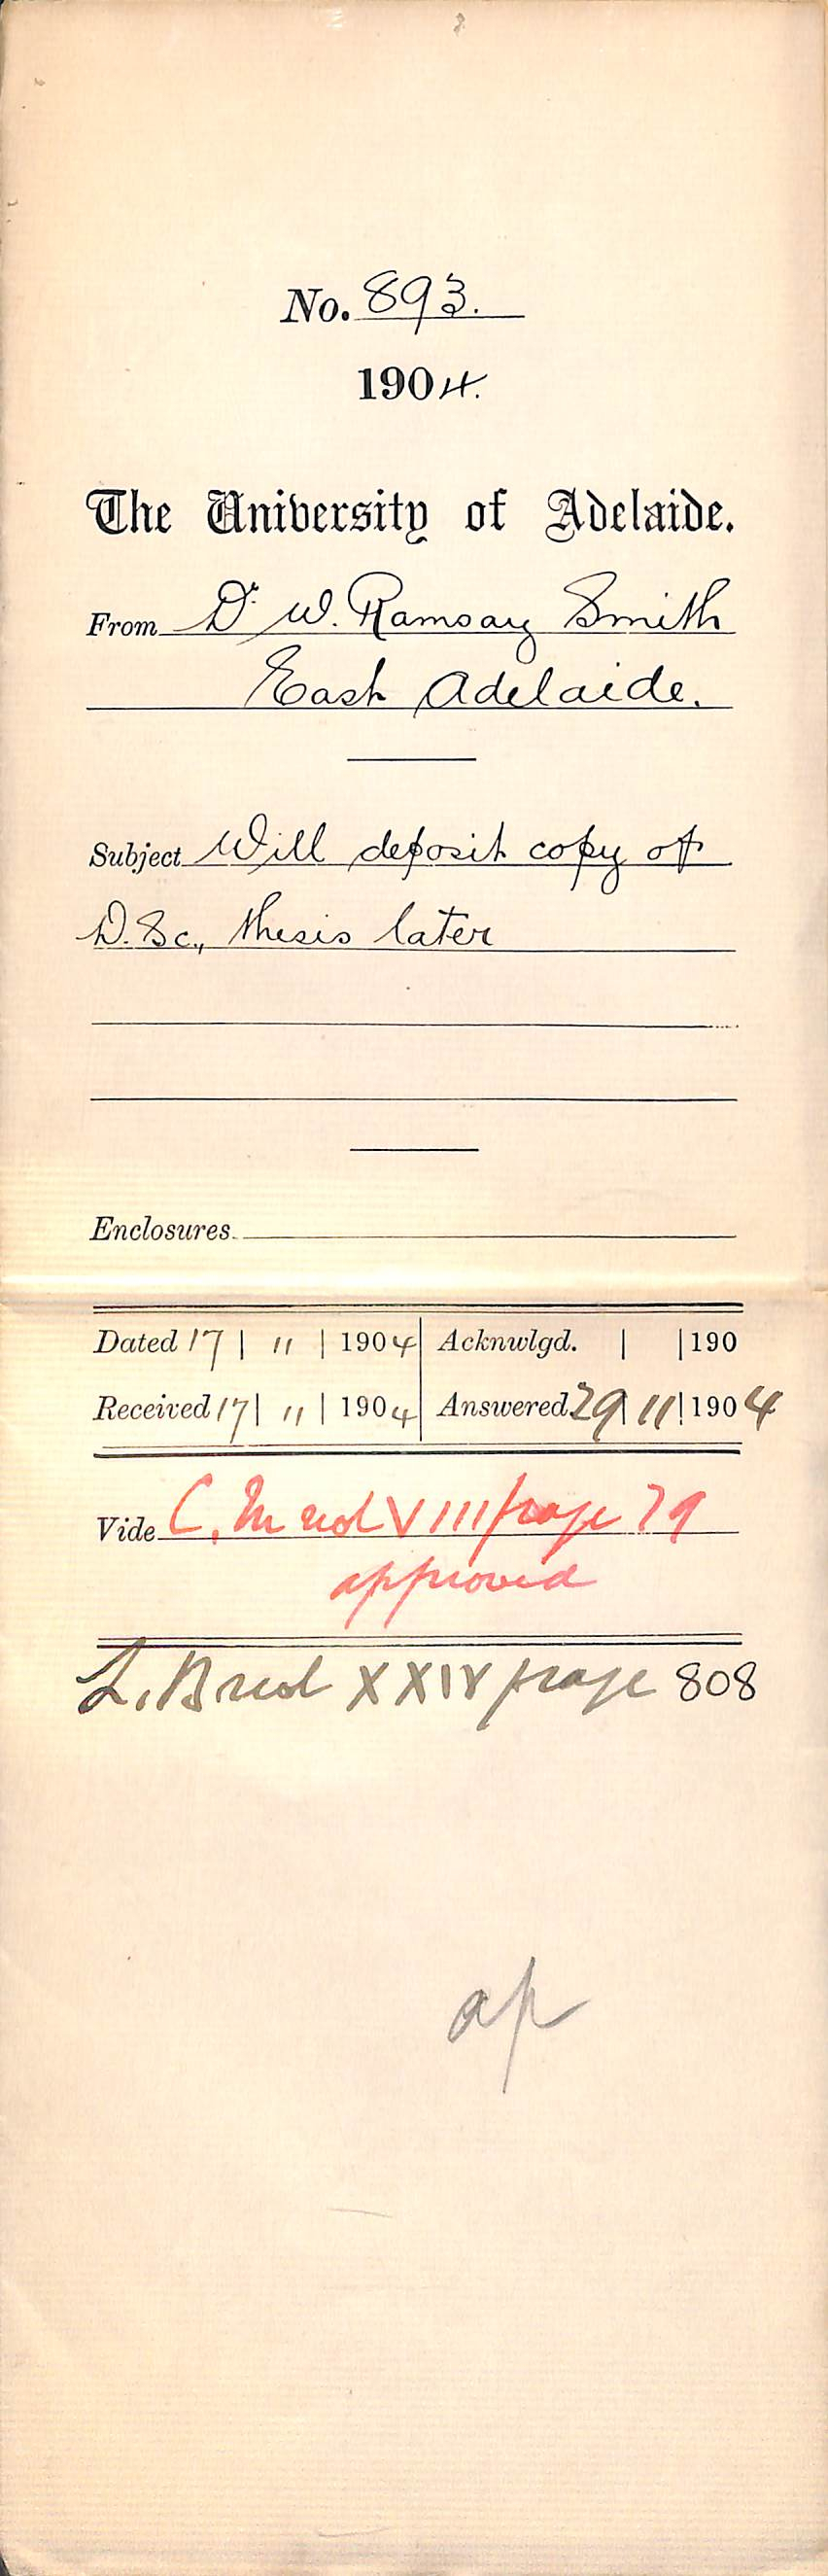 No. 893.
1904.
The University of Adelaide.
From Dr. W. Ramsay Smith
East Adelaide.
Subject Will deposit copy of
D.Sc., thesis later
Enclosures
Dated 17 | 11 | 1904 | Acknwlgd. | | 190
Received 17 | 11 | 1904 | Answered 29 | 11 | 1904
Vide C. M vol VIII page 79
approved
L. B vol XXIV page 808
ap